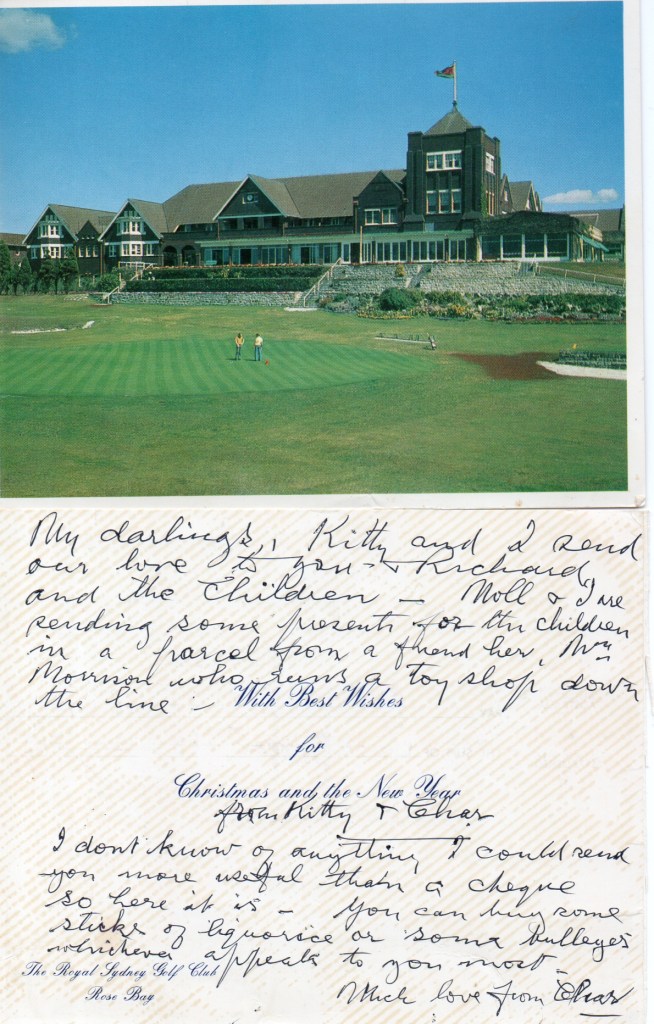 My darlings, Kitty and I send
our love to you & Richard
and the Children — Moll & I are
sending some presents for the children
in a parcel from a friend her, Mrs
Morrison who runs a toy shop down
the line –
With Best Wishes
for
Christmas and the New Year
from Kitty & Char
I dont know of anything I could send
you more useful than a cheque
so here it is — You can buy some
sticks of liquorice or some bulleyes
whichever appeals to you most –
Much love from Char
The Royal Sydney Golf Club
Rose Bay